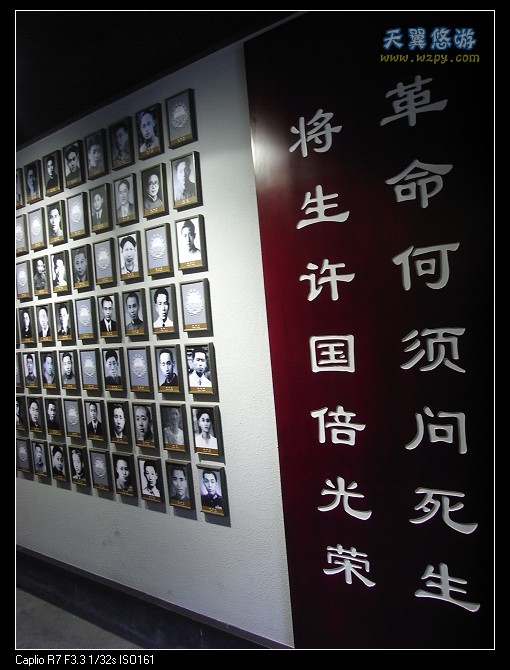 天翼悠游
www.wzpy.com
革命何须问死生
将生许国倍光荣
Caplio R7 F3.3 1/32s ISO161